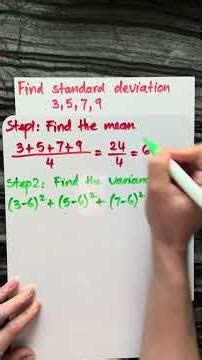 Find standard deviation
3, 5, 7, 9
Step1: Find the mean
3+5+7+9/4 = 24/4 = 6
Step2: Find the varian
(3-6)² + (5-6)² + (7-6)²